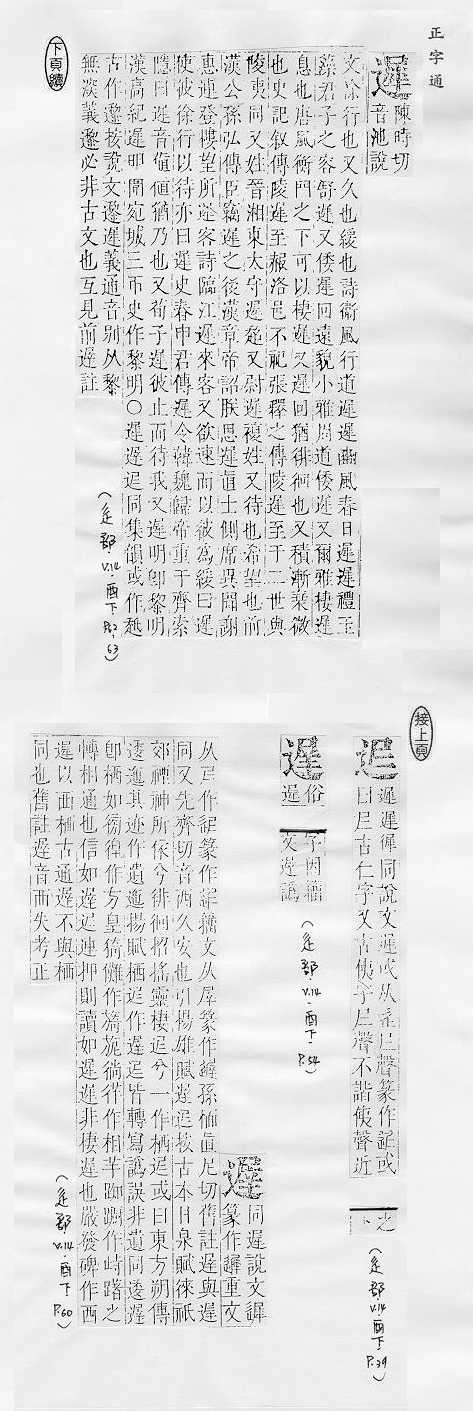 正字通
下頁續
遲
陳時切
音池說
文徐行也又久也緩也詩衛風行道遲遲豳風春日遲遲禮玉
藻君子之容舒遲又倭遲回遠貌小雅周道倭遲又爾雅棲遲
息也唐風衡門之下可以棲遲又遲回猶徘徊也又積漸衰微
也史記叙傳陵遲至赧洛邑不祀張釋之傳陵遲至于二世與
陵夷同又姓晉湘東大守遲超又尉遲複姓又待也希望也前
漢公孫弘傳臣竊遲之後漢章帝詔朕思遲直士側席異聞謝
惠連登樓望所遲客詩臨江遲來客又欲速而以彼為緩曰遲
使彼徐行以待亦曰遲史春申君傳遲令韓魏歸帝重于齊索
隱曰遲音值值猶乃也又荀子遲彼止而待我又遲明卽黎明
漢高紀遲明圍宛城三帀史作黎明○遲遟迡同集韻或作
古作邌按說文邌遲義通音別从黎
無淡義邌必非古文也互見前遟註
(辵部 V.14-酉下 P.62、63)
接上頁
迡
遲遟徲同說文遲或从辵𡰥聲篆作或
曰𡰥古仁字又古夷字𡰥聲不諧夷聲近
之
(辵部 V.14酉下 P.39)
遅
俗
遲
字因籀
文遟譌
(辵部 V.14-酉下 P.54)
遟
同遲說文遲
篆作遟重文
从𡰥作迡篆作籀文从屖篆作孫愐直尼切舊註遟與遲
同又先齊切音西久安也引揚雄賦遟迡按古本甘泉賦徠祇
郊禋神所依兮徘徊招搖靈棲迡兮一作栖迡或曰東方朔傳
逶遟其迹作遺遟揚賦栖迡作遟迡皆轉寫譌誤非遺同逶遟
卽栖如彷徨作方皇猗儺作旖旎徜徉作相羊踟躕作峙躇之
轉相通也信如遟迡連押則讀如遲遲非棲遲也嚴發碑作西
遲以西栖古通遟不與栖
同也舊註遟音西失考正
(辵部 V.14 酉下 P.60)